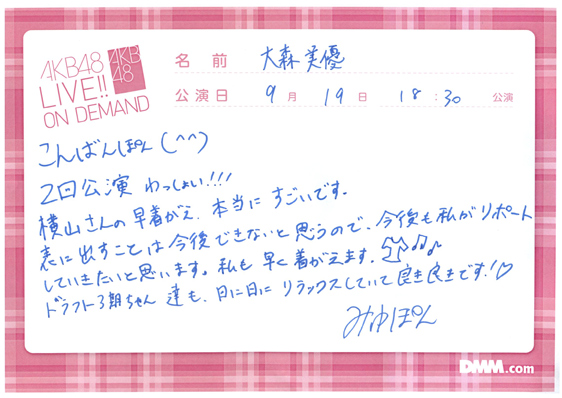 AKB48
LIVE!!
ON DEMAND
AKB
48
名前 大森美優
公演日 9月 19日 18:30 公演
こんばんぽん(^^)
2回公演 わっしょい!!!
横山さんの早着がえ、本当にすごいです。
表に出すことは今後できないと思うので、今後も私がリポート
していきたいと思います。私も早く着がえます。
ドラフト3期ちゃん達も、日に日にリラックスしていて良き良きです!♡
みゆぽん
DMM.com